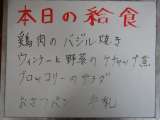 本日の給食
鶏肉のバジル焼き
ウィンナーと野菜のケチャップ煮
ブロッコリーのサラダ
おさつパン 牛乳